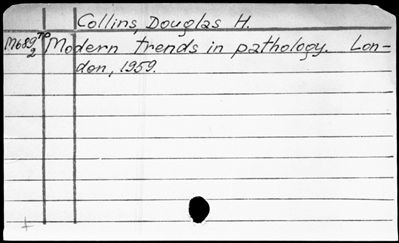 Collins, Douglas H.
Modern trends in pathology. Lon-
don, 1959.